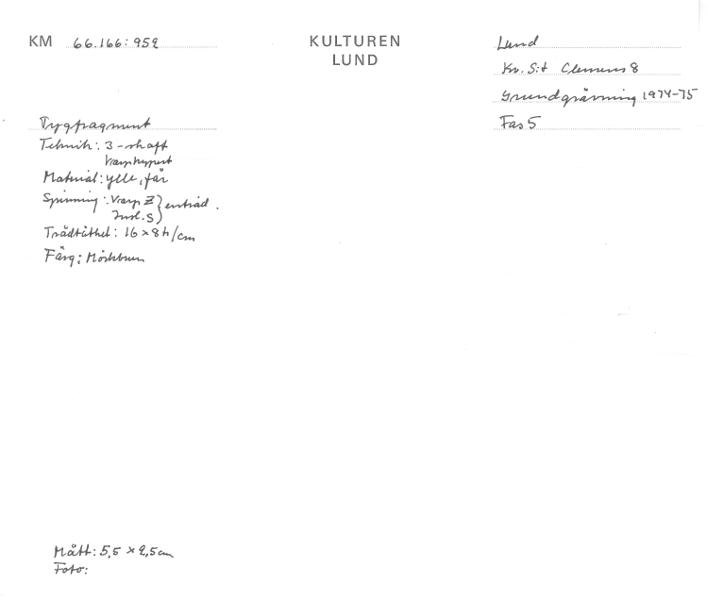 KM 66.166:952
KULTUREN
LUND
Lund
Kv. S:t Clemens 8
Grundgrävning 1974-75
Fas 5
Tygfragment
Teknik: 3-skaft
varpkypert
Material: ylle, får
Spinning: Varp Z } entråd.
Insl. S
Trådtäthet: 16 x 8 tr/cm
Färg: Mörkbrun
Mått: 5,5 x 2,5 cm
Foto: